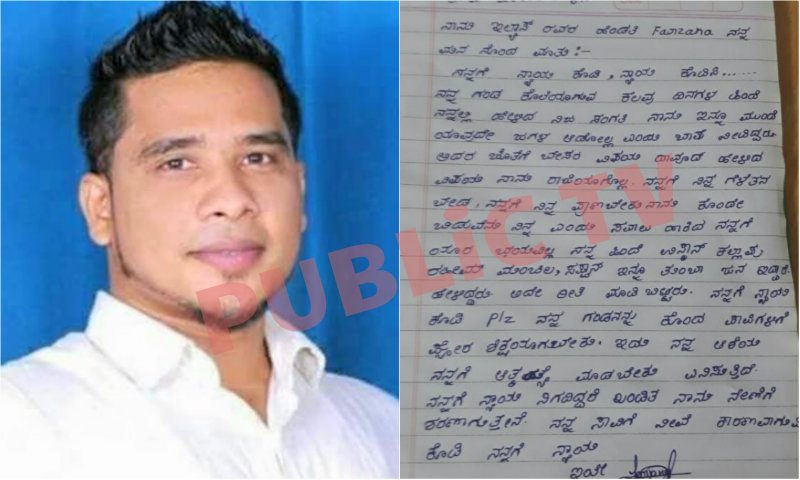 ನಾನು ಇಲ್ಯಾಸ್ ರವರ ಹೆಂಡತಿ Farzana ನನ್ನ
ಮನ ನೊಂದ ಮಾತು :-
ನನಗೆ ನ್ಯಾಯ ಕೊಡಿ, ನ್ಯಾಯ ಕೊಡಿಸಿ......
ನನ್ನ ಗಂಡ ಕೊಲೆಯಾಗುವ ಕೆಲವು ದಿನಗಳ ಹಿಂದೆ
ನನ್ನಲ್ಲಿ ಹೇಳಿದ ನಿಜ ಸಂಗತಿ ನಾನು ಇನ್ನೂ ಮುಂದೆ
ಯಾವುದೇ ಜಗಳ ಆಡೋಲ್ಲ ಎಂದು ಭಾಷೆ ನೀಡಿದ್ದರು
ಅದರ ಜೊತೆಗೆ ಬೇಸರ ವಿಷಯ ದಾವೂದ್ ಹೇಳಿದ
ವಿಷಯ ನಾನು ರಾಜಿಯಾಗೊಲ್ಲ. ನನಗೆ ನಿನ್ನ ಗೆಳೆತನ
ಬೇಡ, ನನಗೆ ನಿನ್ನ ಪ್ರಾಣಬೇಕು ನಾನು ಕೊಂದೇ
ಬಿಡುವೆನು ನಿನ್ನ ಎಂದು ಸವಾಲು ಹಾಕಿದ ನನಗೆ
ಯಾರ ಭಯವಿಲ್ಲ ನನ್ನ ಹಿಂದೆ ಉಸ್ಮಾನ್ ಕಲ್ಲಾಪು
ರಹೀಮ ಮಂಚಿಲ, ಸಫ್ವಾನ್ ಇನ್ನೂ ತುಂಬಾ ಜನ ಇದ್ದಾರೆ
ಹೇಳಿದ್ದರು ಅದೇ ರೀತಿ ಮಾಡಿ ಬಿಟ್ಟರು. ನನಗೆ ನ್ಯಾಯ
ಕೊಡಿ Plz ನನ್ನ ಗಂಡನನ್ನು ಕೊಂದ ಪಾಪಿಗಳಿಗೆ
ಘೋರ ಶಿಕ್ಷೆಯಾಗಬೇಕು. ಇದು ನನ್ನ ಆಸೆಯ
ನನಗೆ ಆತ್ಮ ಮಾಡಬೇಕು ಎನಿಸುತ್ತಿದೆ.
ನನಗೆ ನ್ಯಾಯ ಸಿಗದಿದ್ದರೆ ಖಂಡಿತ ನಾನು ನೇಣಿಗೆ
ಶರಣಾಗುತ್ತೇನೆ. ನನ್ನ ಸಾವಿಗೆ ನೀವೆ ಕಾರಣವಾಗುವ
ಕೊಡಿ ನನಗೆ ನ್ಯಾಯ
ಇಯೇ
PUBLiC TV